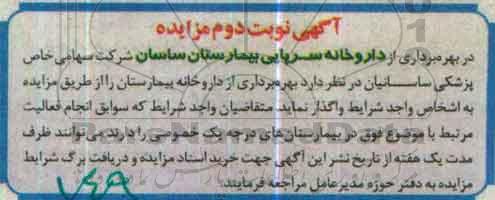 آگهی نوبت دوم مزایده
در بهره‌برداری از داروخانه سرپایی بیمارستان ساسان شرکت سهامی خاص
پزشکی ساسانیان در نظر دارد بهره‌برداری از داروخانه بیمارستان را از طریق مزایده
به اشخاص واجد شرایط واگذار نماید. متقاضیان واجد شرایط که سوابق انجام فعالیت
مرتبط با موضوع فوق در بیمارستان‌های درجه یک خصوصی را دارند می‌توانند ظرف
مدت یک هفته از تاریخ نشر این آگهی جهت خرید اسناد مزایده و دریافت برگ شرایط
مزایده به دفتر حوزه مدیرعامل مراجعه فرمایند.